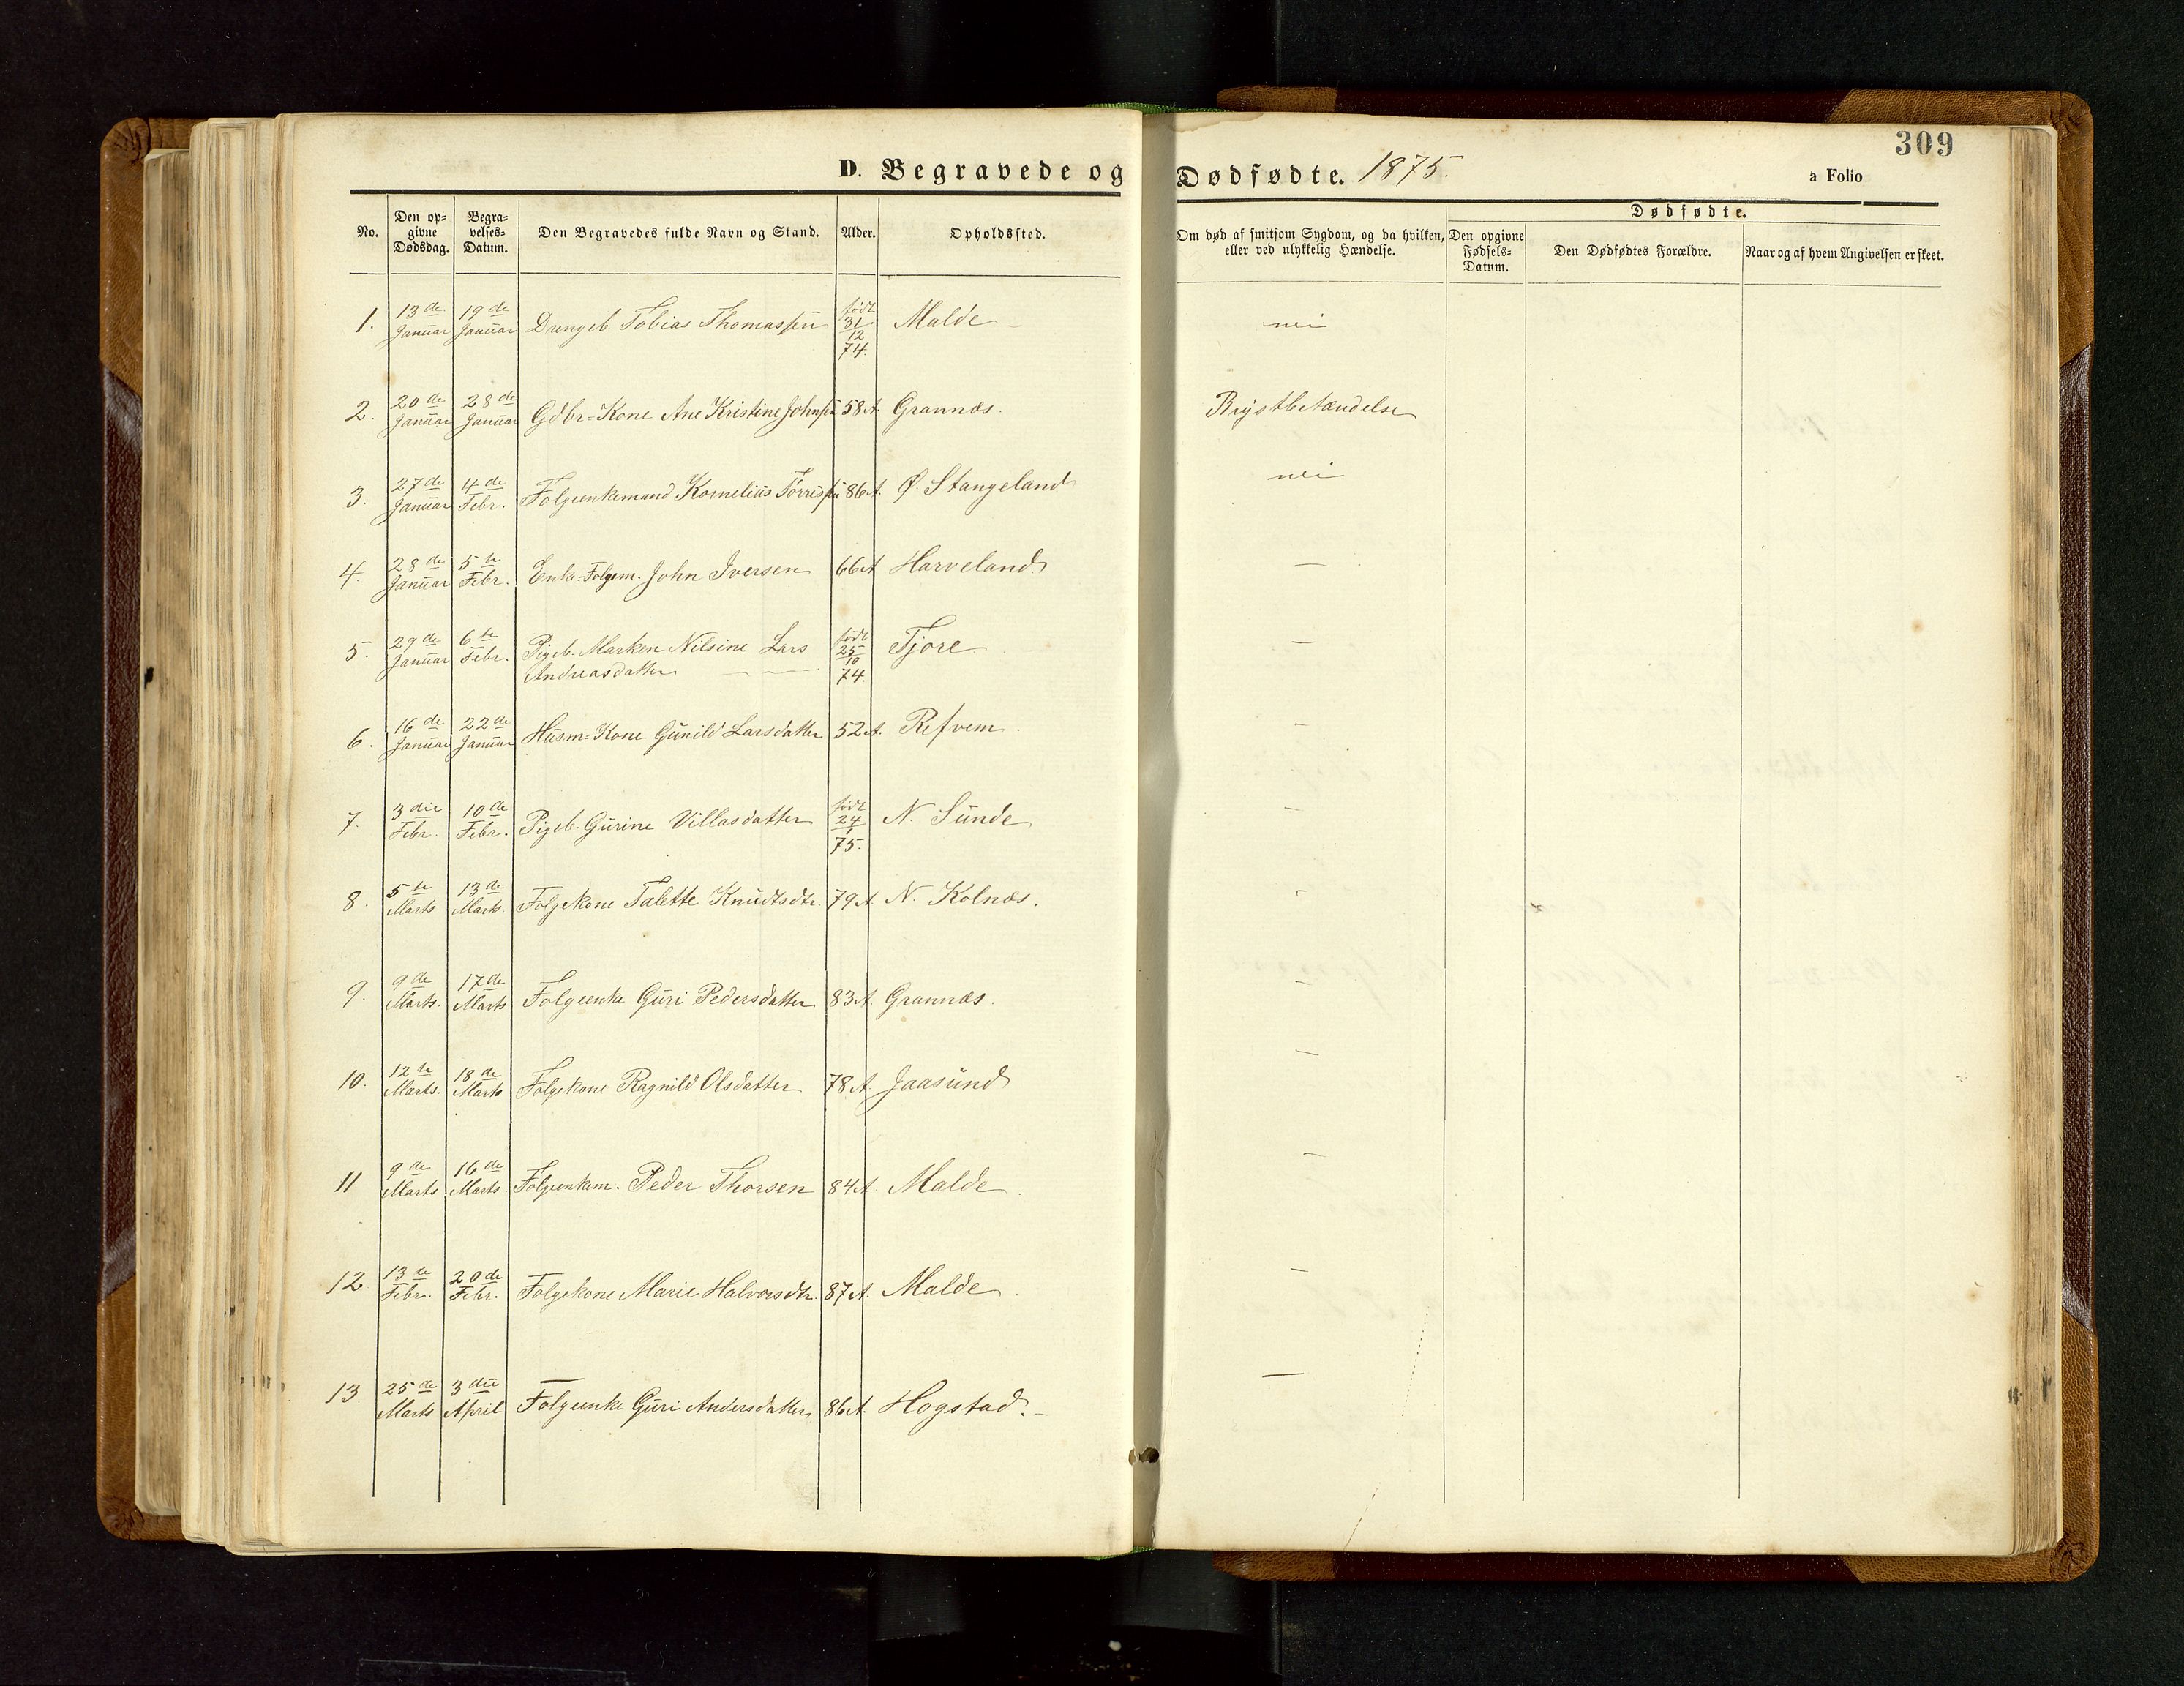 309
D. Begravede og Dødfødte. 1875.
a Folio
No.
Den op-
givne
Dødsdag.
Begra-
velses-
Datum.
Den Begravedes fulde Navn og Stand.
Alder.
Opholdssted.
Om død af smitsom Sygdom, og da hvilken,
eller ved ulykkelig Hændelse.
Dødfødte.
Den opgivne
Fødsels-
Datum.
Den Dødfødtes Forældre.
Naar og af hvem Angivelsen er skeet.
1. 13de Januar 19de Januar Drengeb Tobias Thomassen født 31/12 74. Malde nei
2. 20de Januar 28de Januar Gdbr-Kone Ane Kristine Johnsen 58 A. Grannæs. Brystbetændelse
3. 27de Januar 4de Febr. Folgeenkemand Kornelius Tørrissen 86 A. Ø. Stangeland nei
4. 28de Januar 5te Febr. Enke-Folgem. John Iversen 66 A Harveland —
5. 29de Januar 6te Febr. Pigeb. Marken Nilsine Lars
Andreasdatter født 25/10 74. Tjore —
6. 16de Januar 22de Januar Husm-Kone Gunild Larsdatter 52 A. Refvem —
7. 3die Febr. 10de Febr. Pigeb. Gurine Villasdatter født 24/1 75. N. Sunde —
8. 5te Marts 13de Marts Folgekone Talette Knudtsdtr. 79 A N. Kolnæs. —
9. 9de Marts. 17de Marts Folgeenke Guri Pedersdatter 83 A. Grannæs. —
10. 12te Marts. 18de Marts Folgekone Ragnild Olsdatter 78 A. Jaasund —
11 9de Marts 16de Marts Folgeenkem. Peder Thorsen 84 A Malde —
12 13te Febr. 20de Febr. Folgekone Marie Halvorsdtr. 87 A. Malde —
13 25de Marts 3die April Folgeenke Guri Andersdatter 86 A. Hogstad. —